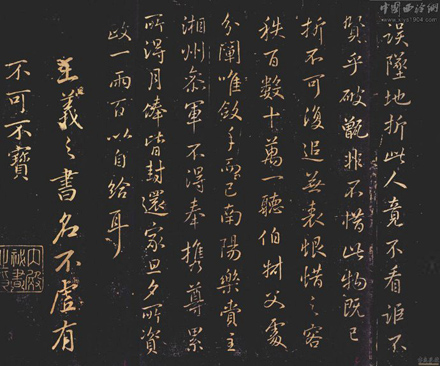 誤墜地折此人竟不看詎不
賢乎破甑非不惜此物既已
折不可復追無哀恨惜之容
秩百數十萬一聽伯樹父處
分闔唯斂手而已南陽樂賞主
湘州參軍不得奉携尊累
所得月俸皆封還家旦夕所資
政一兩百以自給耳
王羲之書名不虛有
不可不寶
内殿秘書之印
中国西泠网
www.xlys1904.com